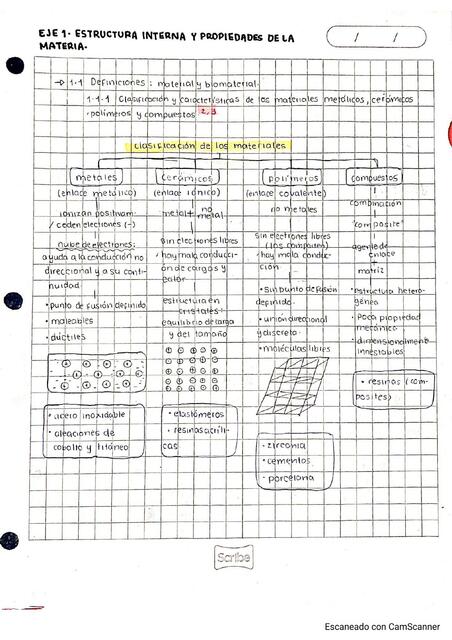 EJE 1. ESTRUCTURA INTERNA Y PROPIEDADES DE LA
MATERIA.
/ /
→ 1.1 Definiciones: material y biomaterial.
1.1.1 Clasificación y características de los materiales metálicos, cerámicos
· polímeros y compuestos 2,3
Clasificación de los materiales
metales
(enlace metálico)
ionizan positivam.
/ ceden electrones (-)
nube de electrones:
ayuda a la conducción no
direccional y a su conti-
nuidad
• punto de fusión definido
• maleables
• dúctiles
• acero inoxidable
• aleaciones de
cobalto y titáneo
Cerámicos
(enlace iónico)
metal + no
metal
sin electrones libres
/ hay mala conducci-
ón de cargas y
calor
estructura en
cristales:
equilibrio de carga
y del tamaño
• elastómeros
• resinas acríli-
cas
polímeros
(enlace covalente)
no metales
sin electrones libres
(los comparten)
/ hay mala conduc-
ción
• sin punto de fusión
definido.
• unión direccional
y discreta.
• moléculas libres
• zirconia
• cementos
• porcelana
compuestos
combinación
"composite"
agente de
enlace
+
matriz
• estructura hetero-
génea
• Poca propiedad
mecánica
• dimensionalmente
inestables.
• resinas (com-
posites)
Scribe
Escaneado con CamScanner